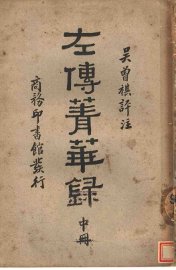 吳曾祺評注
左傳菁華録
中冊
商務印書館發行